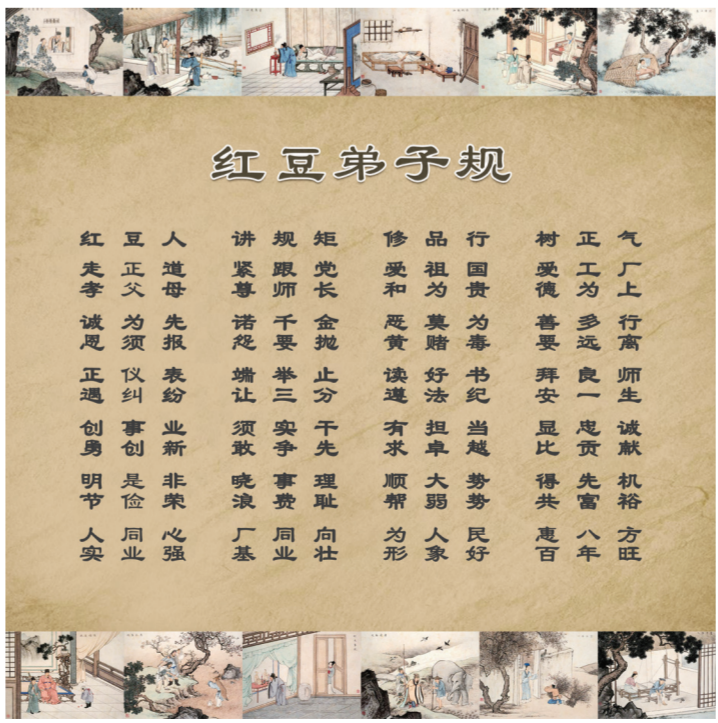 红豆弟子规
红豆人 讲规矩 修品行 树正气
走正道 紧跟党 爱祖国 爱工厂
孝父母 尊师长 和为贵 德为上
诚为先 诺千金 恶莫为 善多行
恩须报 怨要抛 黄赌毒 要远离
正仪表 端举止 读好书 拜良师
遇纠纷 让三分 遵法纪 安一生
创事业 须实干 有担当 显忠诚
勇创新 敢争先 求卓越 比贡献
明是非 晓事理 顺大势 得先机
节俭荣 浪费耻 帮弱势 共富裕
人同心 厂同向 为人民 惠八方
实业强 基业壮 形象好 百年旺